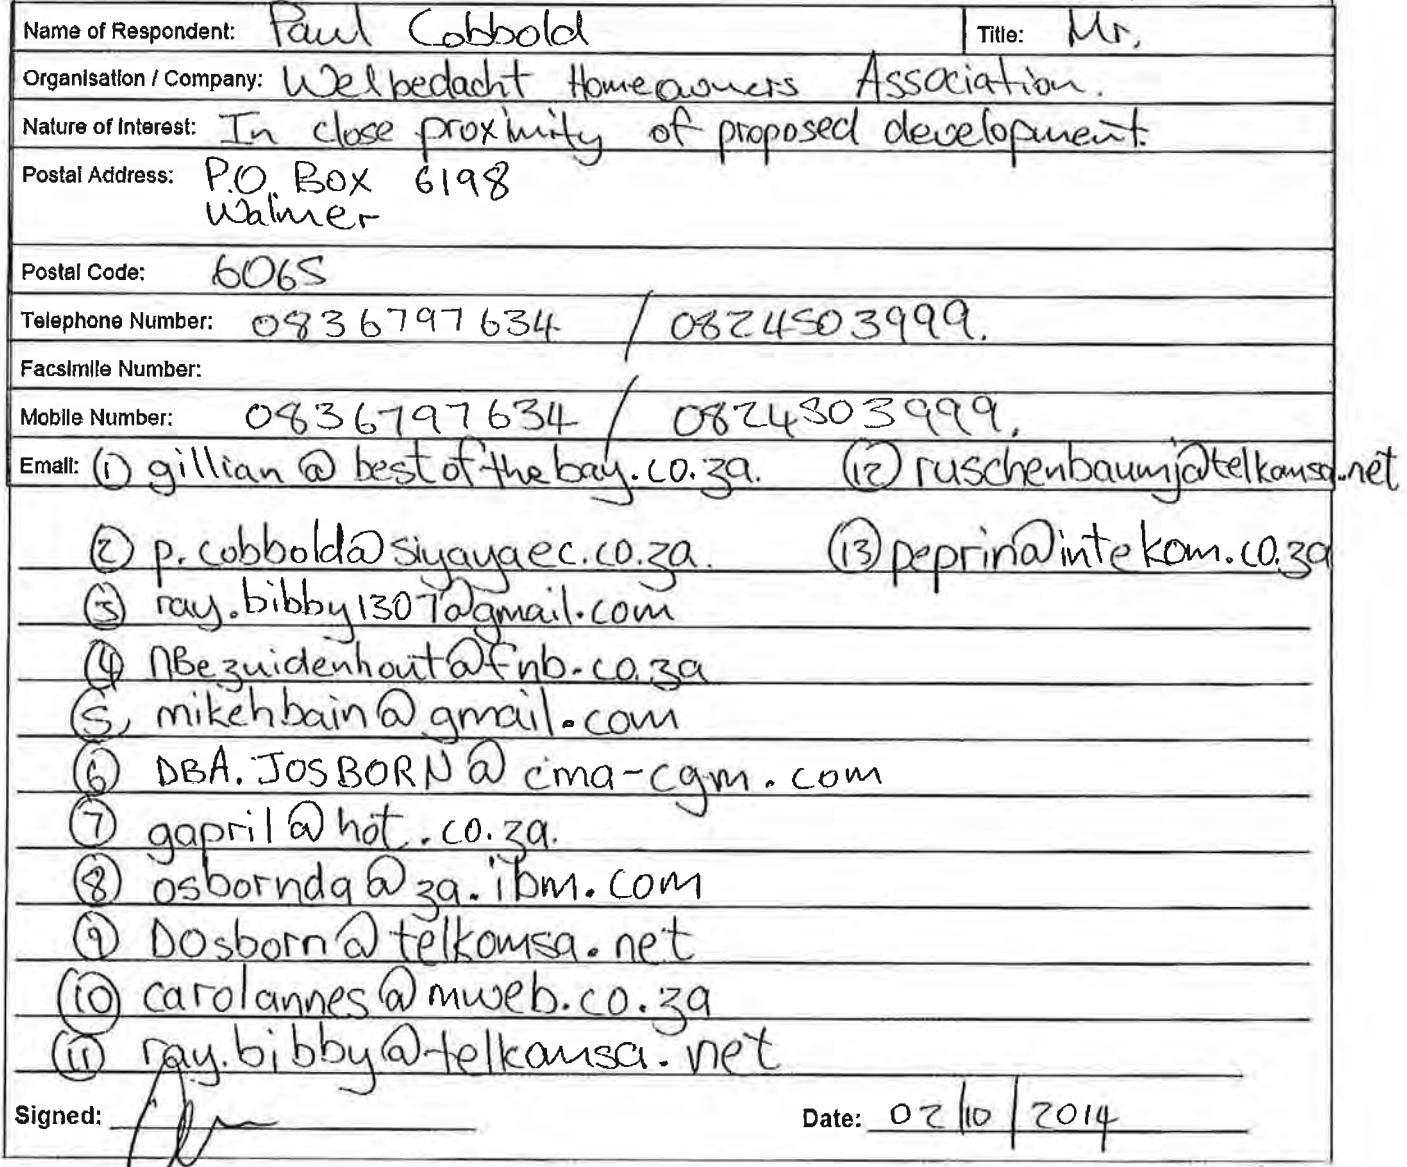 Name of Respondent: Paul Cobbold Title: Mr.
Organisation / Company: Welbedacht Homeowners Association.
Nature of Interest: In close proximity of proposed development.
Postal Address: P.O. Box 6198
Walmer
Postal Code: 6065
Telephone Number: 0836797634 / 0824503999.
Facsimile Number:
Mobile Number: 0836797634 / 0824503999.
Email: (1) gillian@bestofthebay.co.za. (12) ruschenbaumj@telkomsa.net
(2) p.cobbold@siyayaec.co.za. (13) peprin@intekom.co.za
(3) ray.bibby1307@gmail.com
(4) NBezuidenhout@fnb.co.za
(5) mikehbain@gmail.com
(6) DBA.JOSBORN@cma-cgm.com
(7) gapril@hot.co.za.
(8) osbornda@za.ibm.com
(9) Dosborn@telkomsa.net
(10) carolannes@mweb.co.za
(11) ray.bibby@telkomsa.net
Signed: Date: 02/10/2014